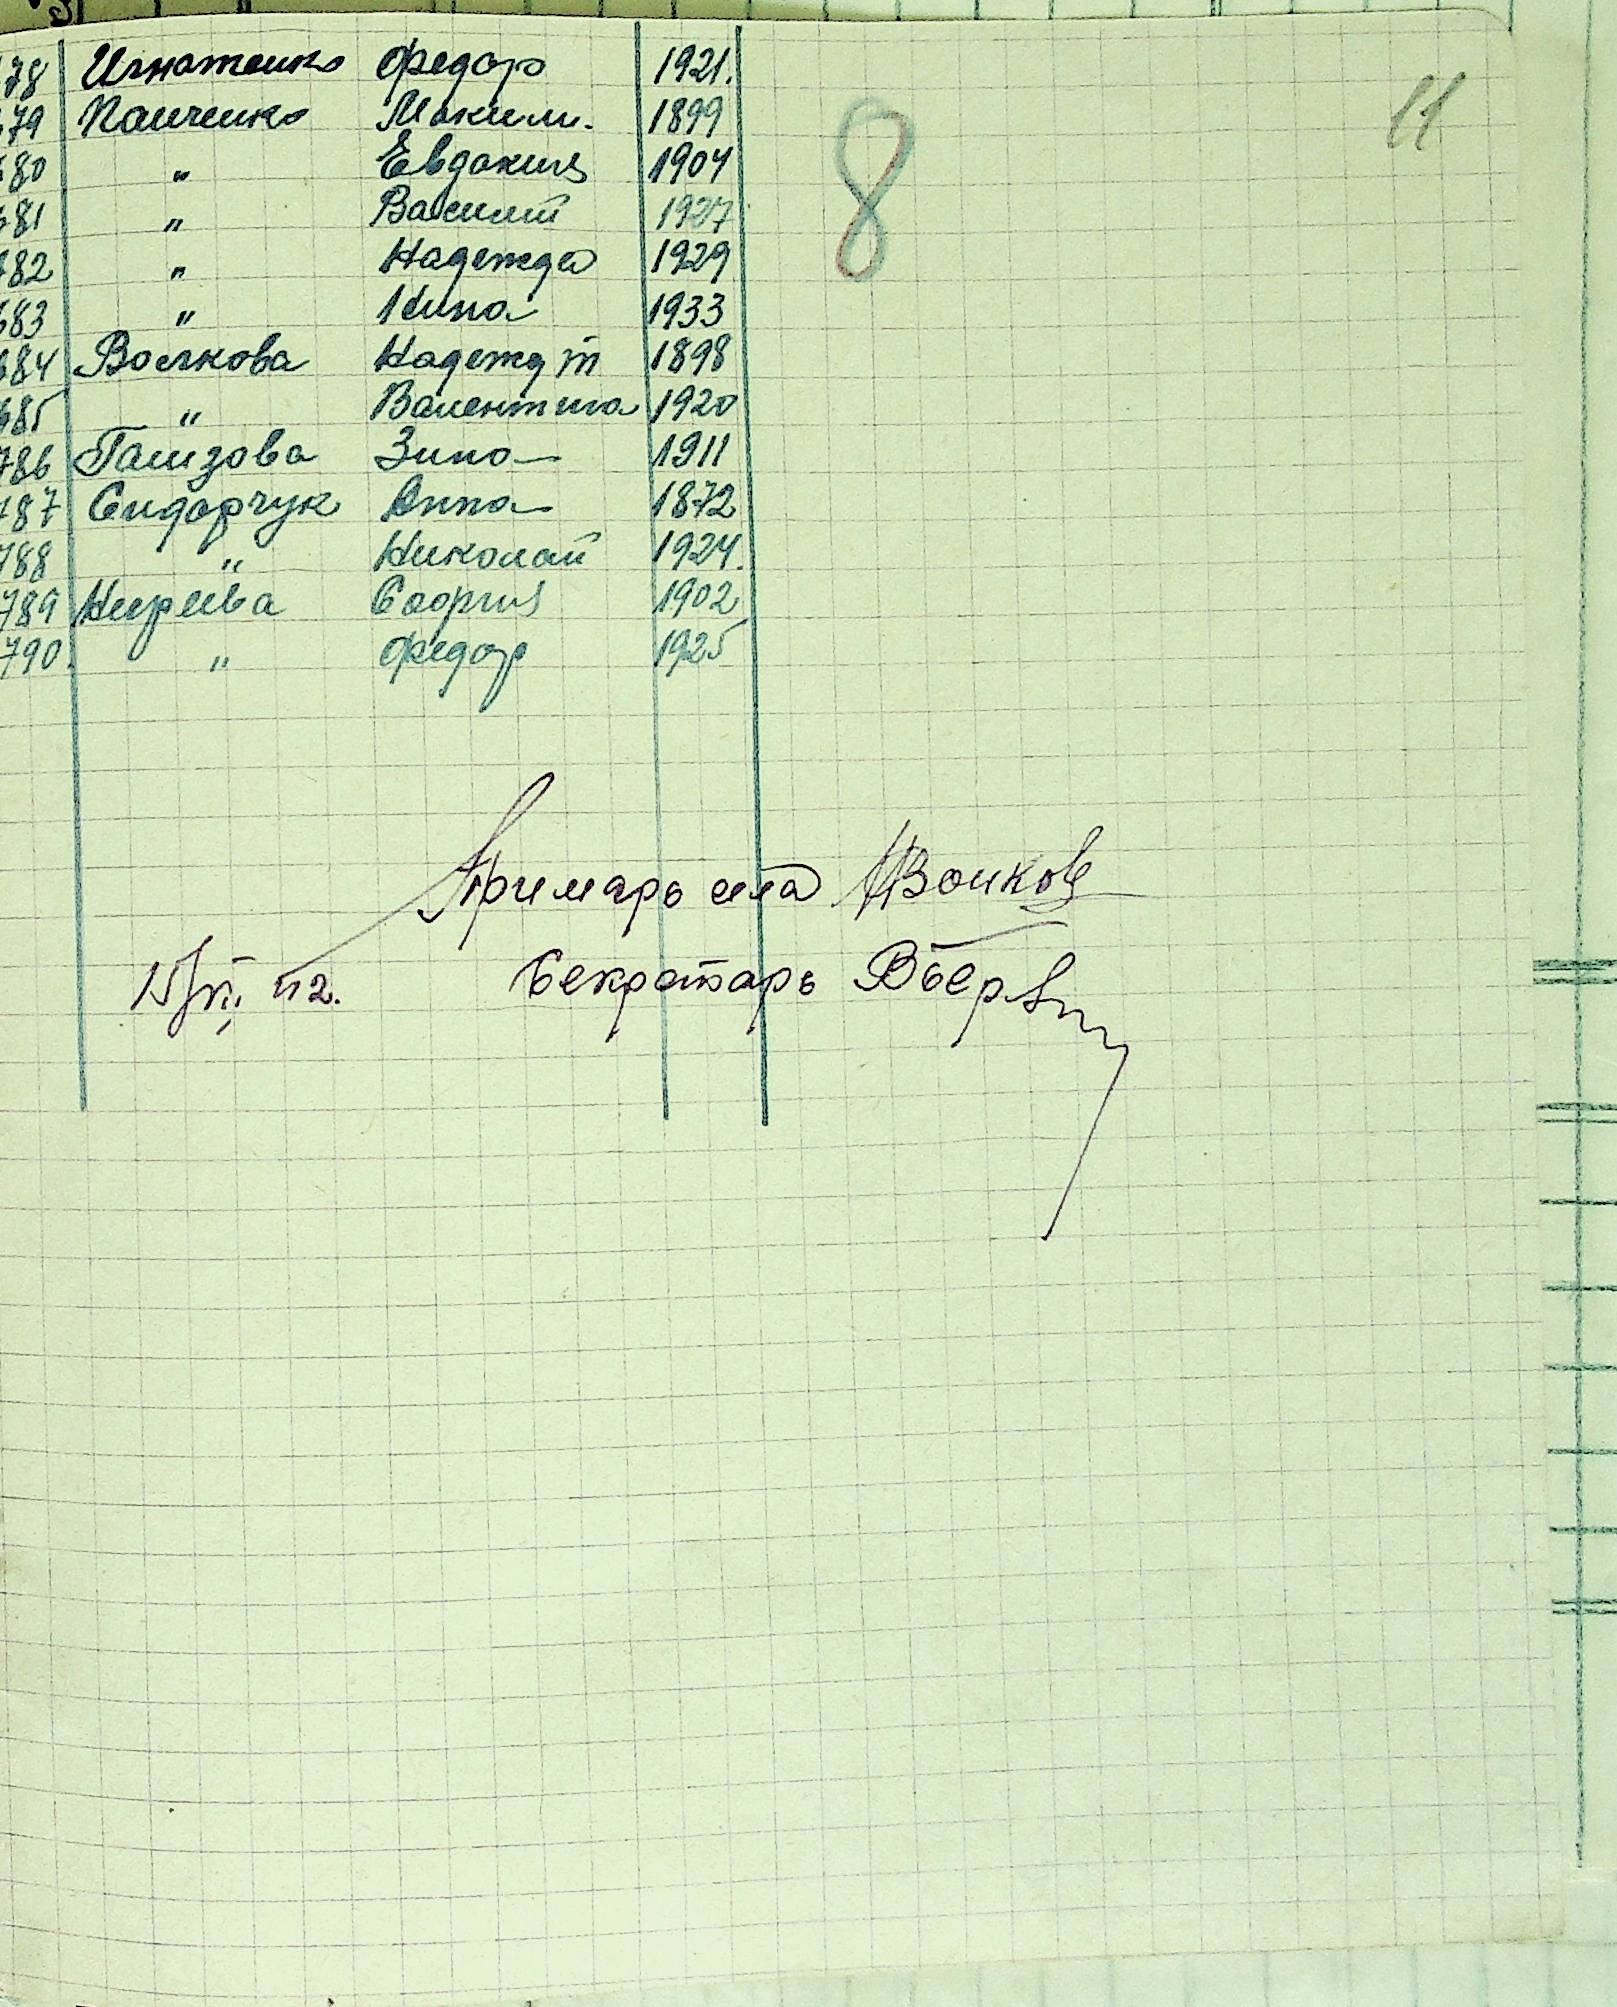 11
8
78 Игнатенко Федор 1921.
79 Панченко Максим. 1899
680 „ Евдокия 1904
681 „ Василий 1927
782 „ Надежда 1929
683 „ Нина 1933
684 Волкова Надежд 1898
685 „ Валентина 1920
786 Зина 1911
787 Сидорчук Анна 1872
788 „ Николай 1924.
789 Георгий 1902
790. „ Федор 1925
Примарь села Волков
15/VII 42. Секретарь